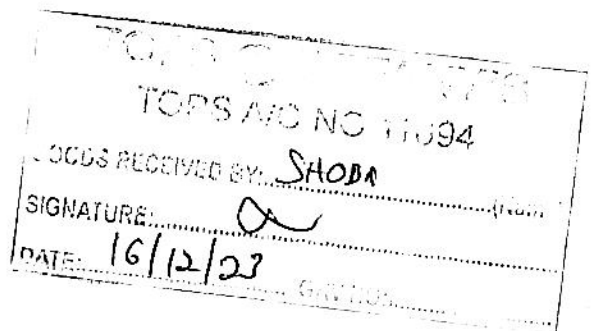 TOPS
TOPS A/C NO 11094
GOODS RECEIVED BY: SHOBA
SIGNATURE:
DATE: 16/12/23